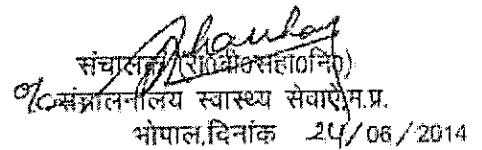 संचालक (रा0बी0सहा0नि0)
संचालनालय स्वास्थ्य सेवाऐं म.प्र.
भोपाल,दिनांक 24/06/2014